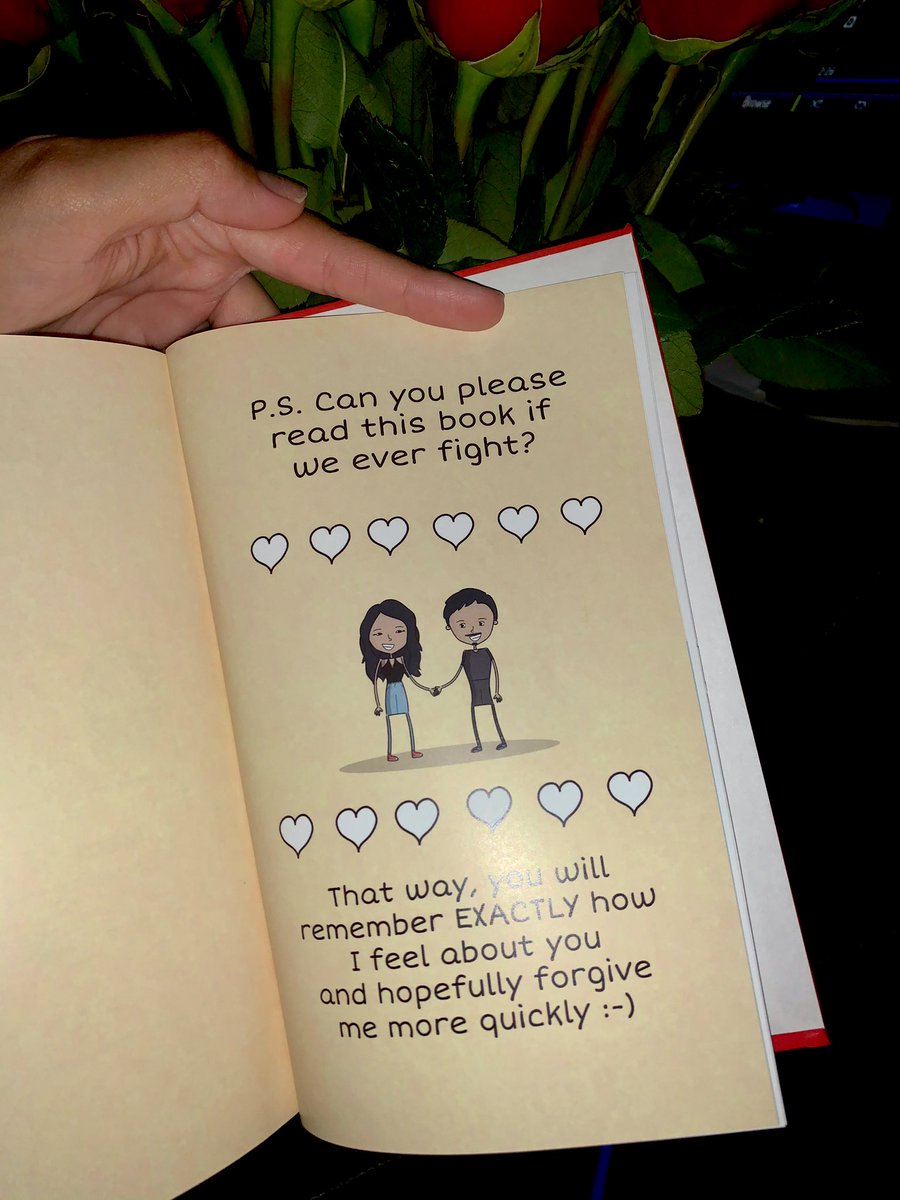 P.S. Can you please
read this book if
we ever fight?
That way, you will
remember EXACTLY how
I feel about you
and hopefully forgive
me more quickly :-)